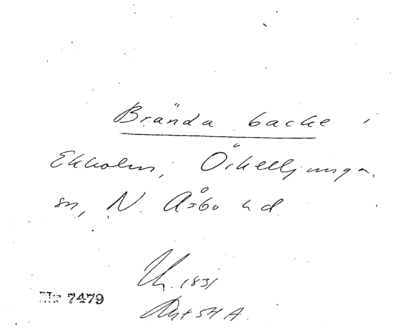 Brända backe i
Ekholm, Örkelljunga
sn, N. Åsbo hd
1831
No 7479